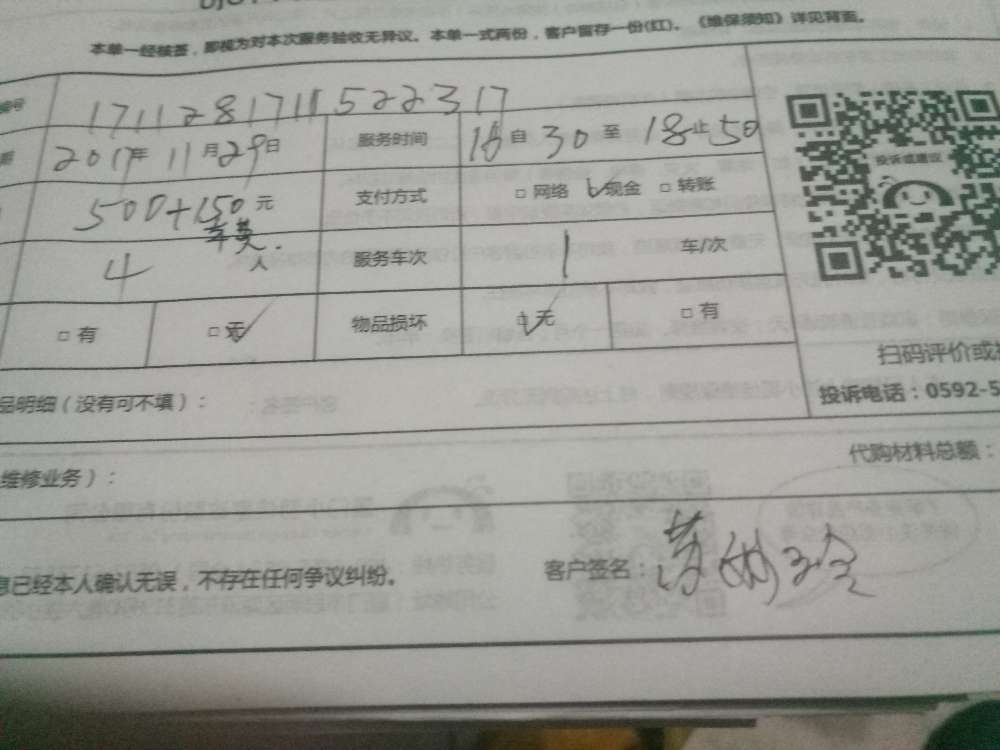 本单一经核签，即视为对本次服务验收无异议。本单一式两份，客户留存一份(红)。《维保须知》详见背面。
编号 17112817115522317
期 2017年 11月29日 服务时间 16 自 30 至 18 止 50
500+150元 支付方式 □ 网络 □ 现金 □ 转账
车费.
4 人 服务车次 1 车/次
□ 有 □ 无 物品损坏 □ 无 □ 有
投诉或建议
扫码评价或
品明细（没有可不填）：
投诉电话：0592-5
维修业务）：
代购材料总额：
息已经本人确认无误，不存在任何争议纠纷。
客户签名：